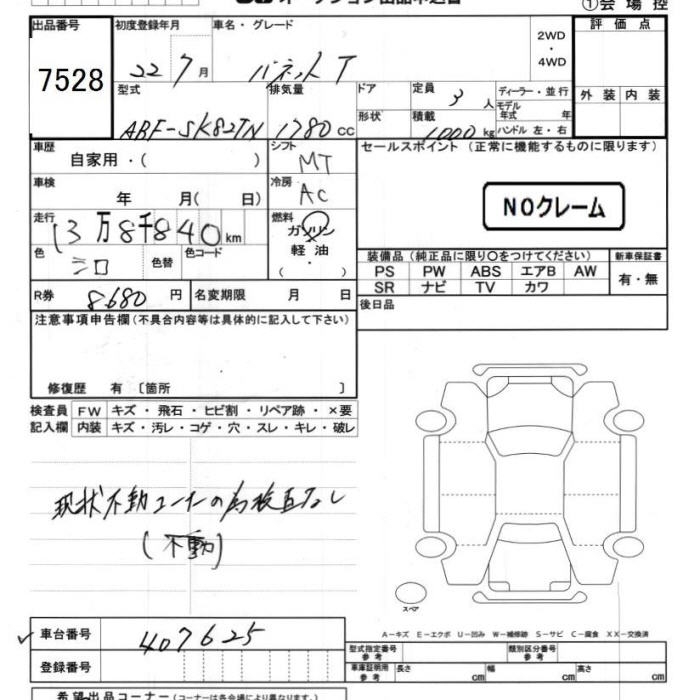 ①会場控
出品番号 初度登録年月 車名・グレード 2WD 評価点
7528 22 7月 バネットT ・ 4WD
型式 排気量 ドア 定員 3人 ディーラー・並行 外装 内装
ABF-SK82TN 1780cc 形状 積載 1000kg モデル年式 年
ハンドル 左・右
車歴 自家用・( ) シフト MT セールスポイント (正常に機能するものに限ります)
車検 年 月( 日) 冷房 AC
NOクレーム
走行 13万8千840km 燃料 ガソリン
軽油
( ・ )
色 シロ 色替 色コード 装備品 (純正品に限り○をつけてください) 新車保証書
PS PW ABS エアB AW 有・無
SR ナビ TV カワ
R券 8680円 名変期限 月 日 後日品
注意事項申告欄 (不具合内容等は具体的に記入して下さい)
修復歴 有 〔箇所 〕
検査員 FW キズ・飛石・ヒビ割・リペア跡・×要
記入欄 内装 キズ・汚レ・コゲ・穴・スレ・キレ・破レ
現状不動コーナーの為検査なし
(不動)
スペア
A－キズ E－エクボ U－凹み W－補修跡 S－サビ C－腐食 XX－交換済
車台番号 407625
登録番号
型式指定番号 参考 類別区分番号 参考
車庫証明用 参考 長さ cm 幅 cm 高さ cm
希望出品コーナー (コーナーは各会場により異なります。)